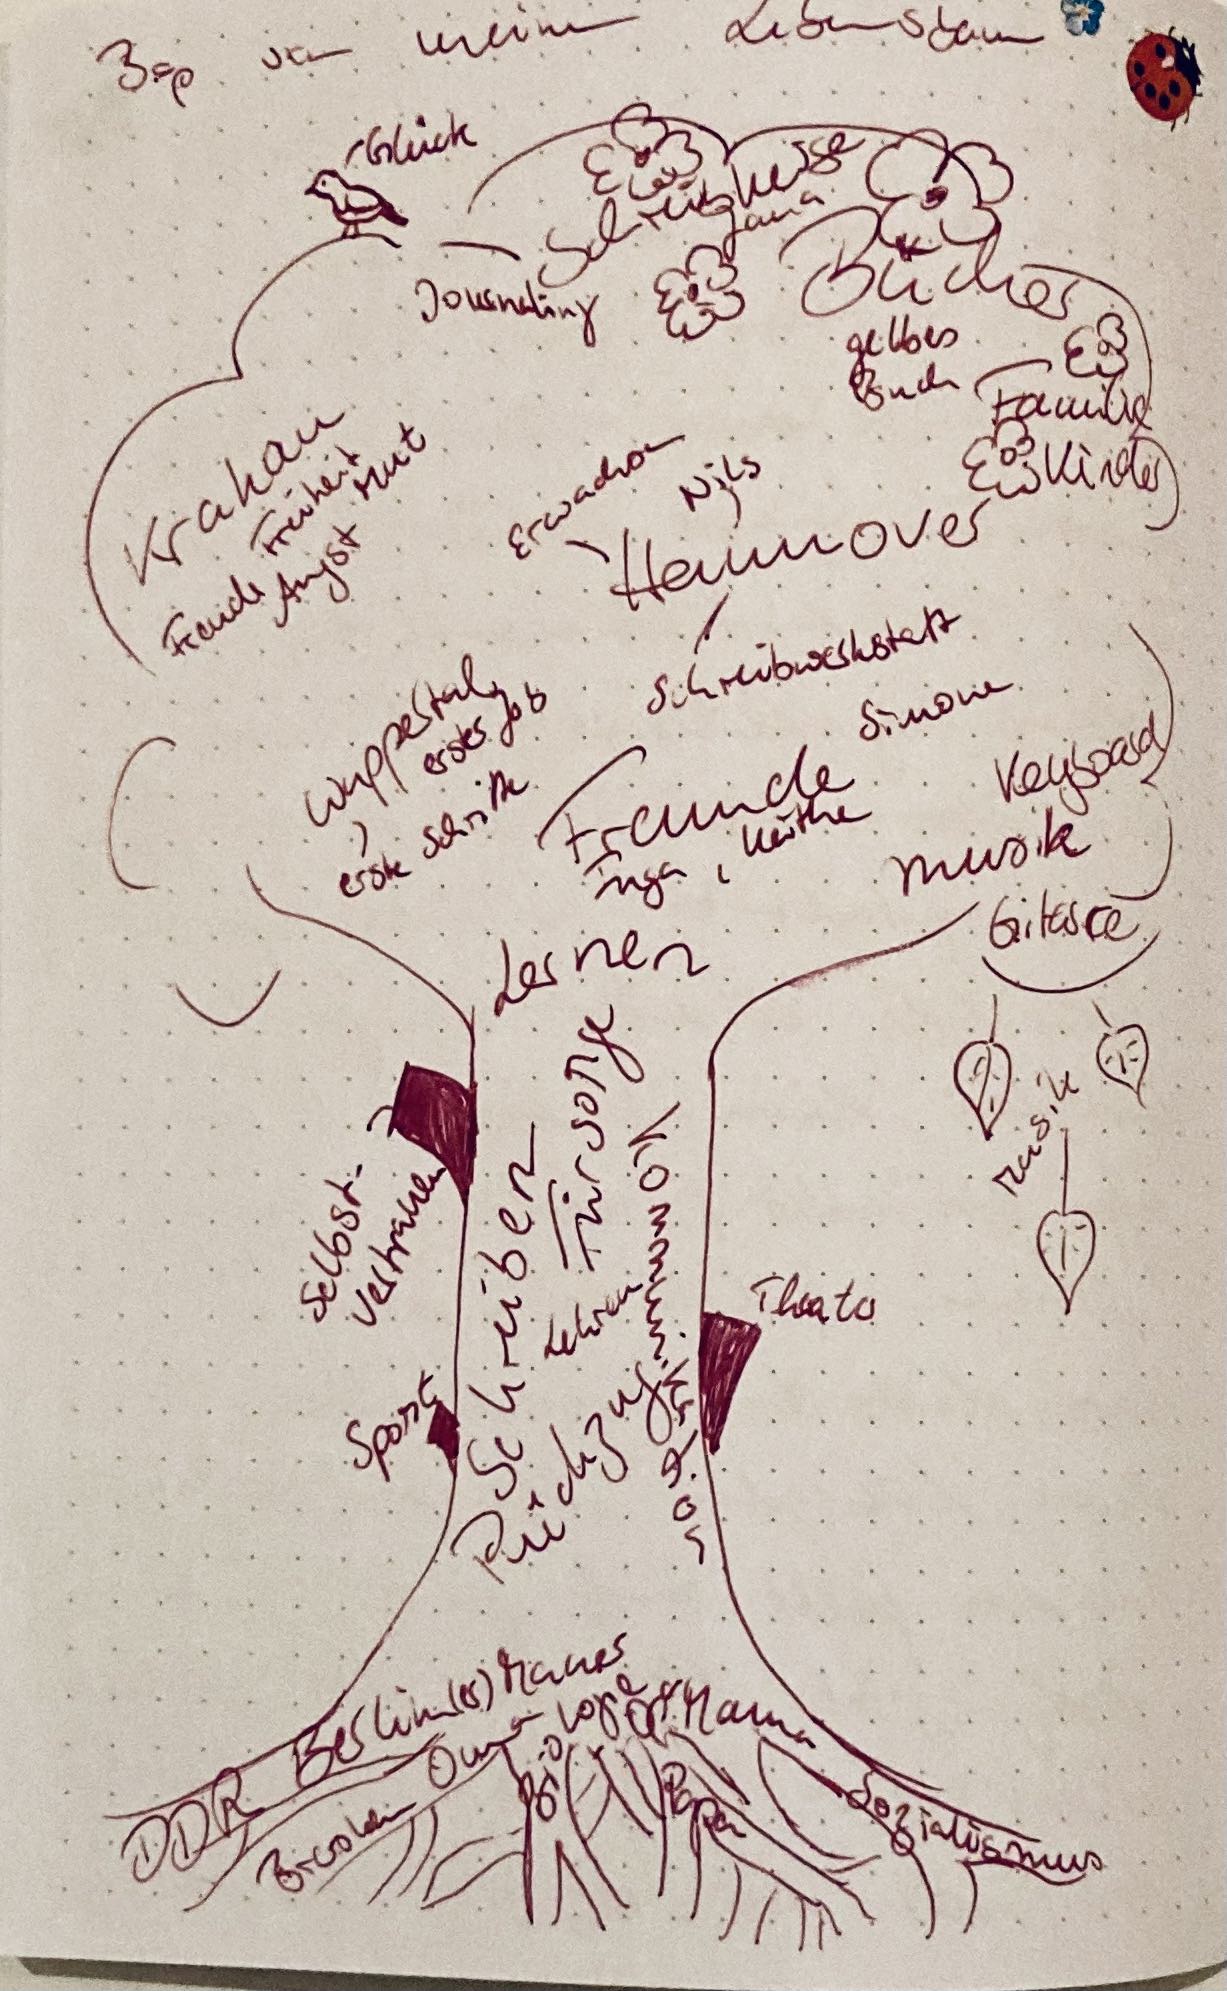 Bsp von meinem Lebensbaum
Glück
Schreibkreise
Jana
Journaling
Bücher
gelbes
Buch
Familie
Kinder
Krakau
Freiheit Mut
Freude Angst
Erwachsen
Nils
Hannover
Schreibwerkstatt
Simone
Wuppertal,
erster Job
erste Schritte
Freunde
Inga, Käthe
Keyboard
Musik
Gitarre
Lernen
Fürsorge
Schreiben
Lehren
Rückzug
Selbst-
vertrauen
Musik
Theater
Sport
Berlin(er) Mauer
Oma
Opa
Mama
Papa
DDR
Sozialismus